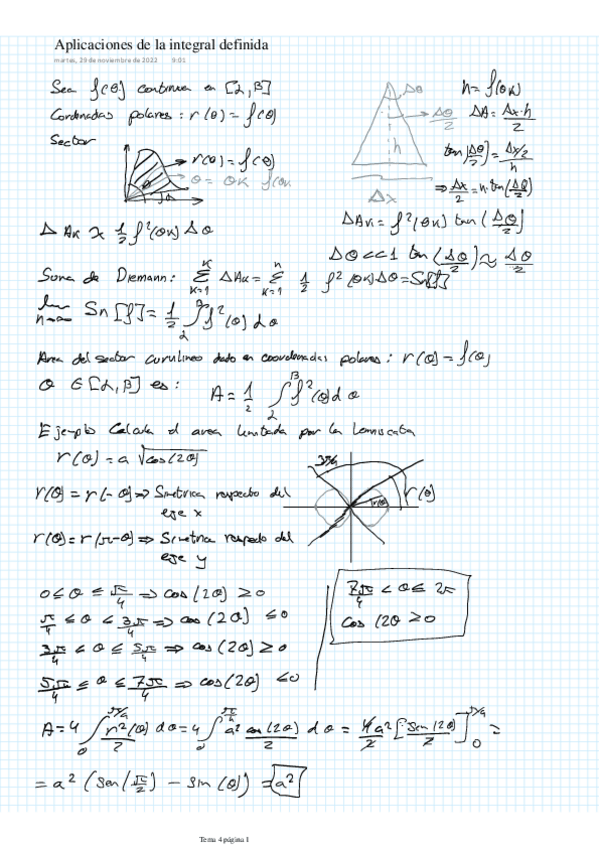 Aplicaciones de la integral definida
martes, 29 de noviembre de 2022 9:01
Sea f(θ) continua en [α,β]
Cordenadas polares: r(θ) = f(θ)
Sector
r(θ) = f(θ)
θ = θK f(θK
Δθ
Δθ/2
h
Δx
h = f(θK)
ΔA = Δx·h/2
tan(Δθ/2) = Δx/2/h
⇒ Δx/2 = h·tan(Δθ/2)
Δ AK ≈ 1/2 f²(θK) Δθ
ΔAK = f²(θK) tan(Δθ/2)
Δθ<<1 tan(Δθ/2) ≈ Δθ/2
Suma de Riemann: Σ ΔAK = Σ 1/2 f²(θK)Δθ = Sn[f]
lim n→∞ Sn[f] = 1/2 ∫ f²(θ) dθ
Area del sector curvilineo dado en coordenadas polares: r(θ) = f(θ)
θ ∈ [α,β] es: A = 1/2 ∫ f²(θ) d θ
Ejemplo Calcula el area limitada por la lemniscata
r(θ) = a √cos(2θ)
3π/4
r(θ)
r(θ) = r(-θ) ⇒ Simetrica respecto del
eje x
r(θ) = r(π-θ) ⇒ Simetria respecto del
eje y
0 ≤ θ ≤ π/4 ⇒ cos(2θ) ≥ 0
π/4 ≤ θ ≤ 3π/4 ⇒ cos(2θ) ≤ 0
3π/4 ≤ θ ≤ 5π/4 ⇒ cos(2θ) ≥ 0
5π/4 ≤ θ ≤ 7π/4 ⇒ cos(2θ) ≤ 0
7π/4 < θ ≤ 2π
cos(2θ ≥ 0
A = 4 ∫₀^π/4 r²(θ)/2 dθ = 4 ∫₀^π/4 a² cos(2θ)/2 dθ = 4a²/2 [sen(2θ)/2]₀^π/4 =
= a² (sen(π/2) - sin(θ)) = a²
Tema 4 página 1